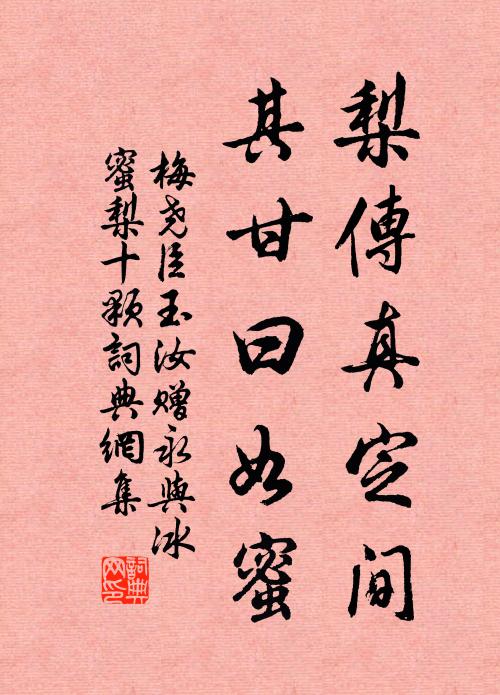 梨傳真定間
其甘曰如蜜
梅堯臣玉汝赠永與冰
蜜梨十顆詞典網集
詞典
网印